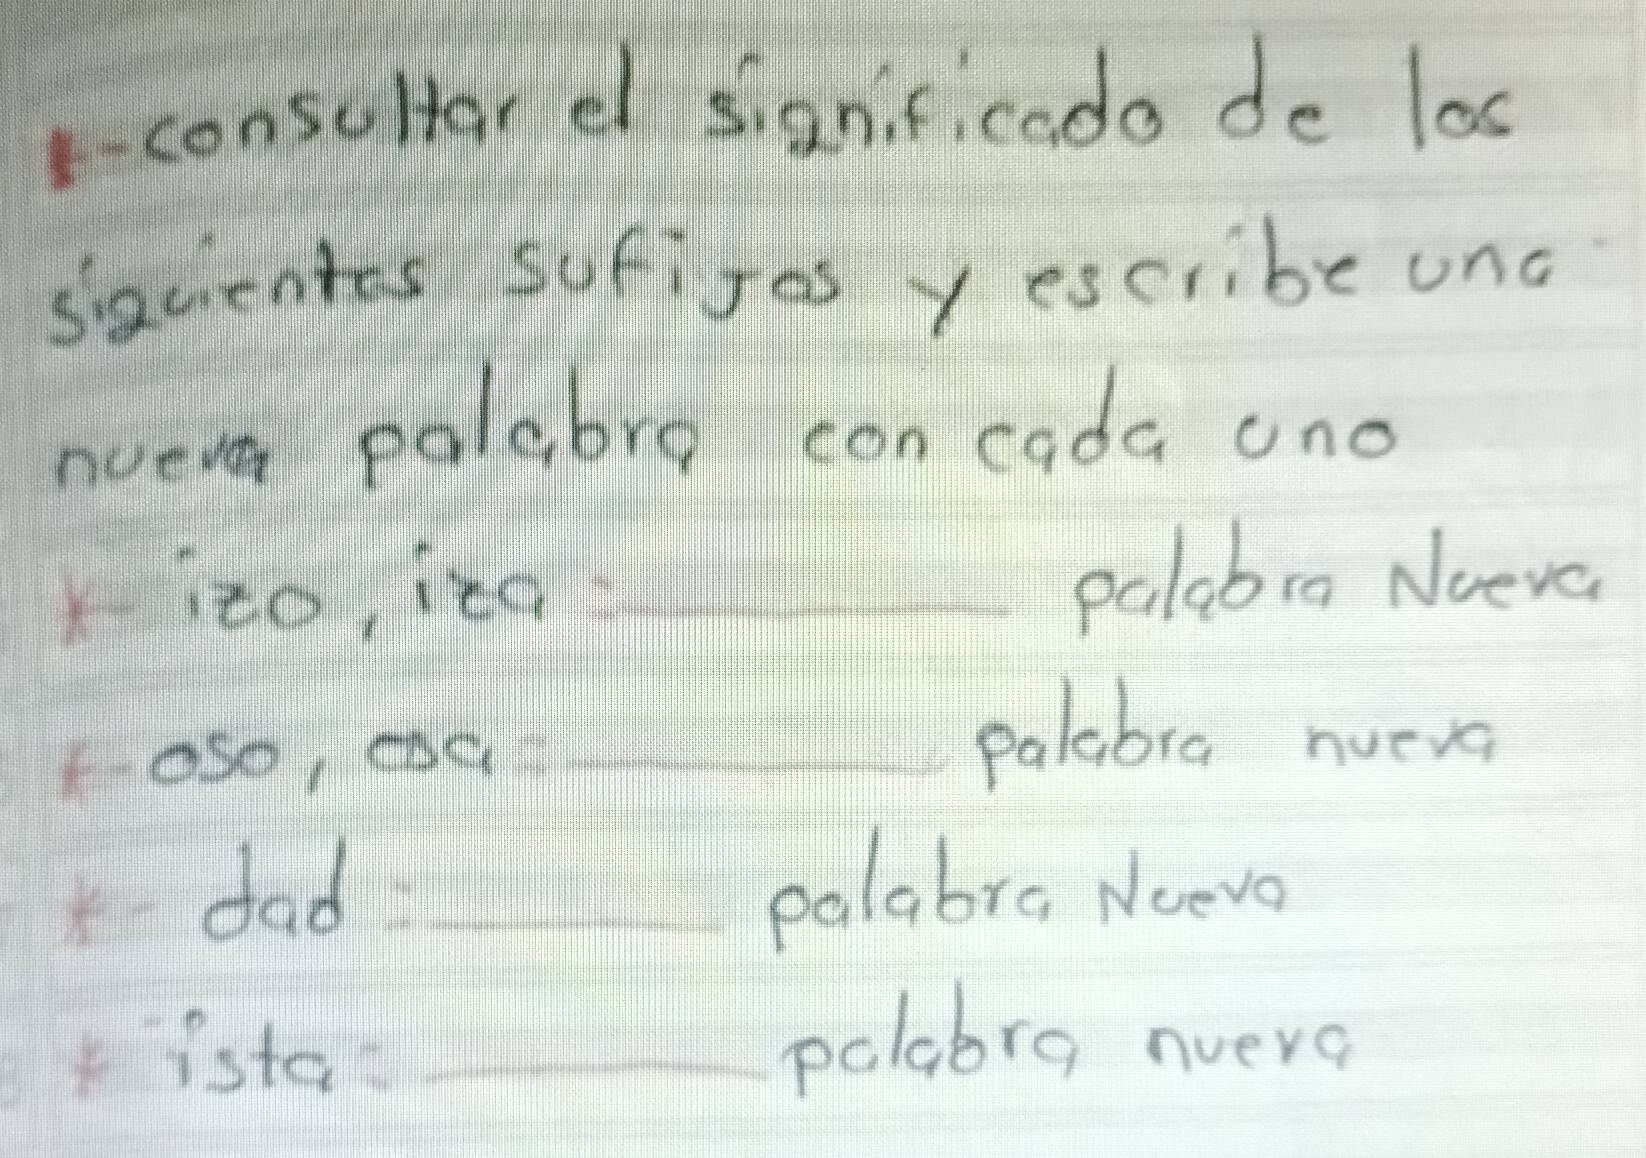 1-consultar el significado de los
siguientes sufijos y escribe una
nueva palabra con cada uno
*- izo, iza = ________ palabra Nueva
*- oso, osa = ________ palabra nueva
*- dad = ________ palabra Nueva
*- ista = ________ palabra nueva